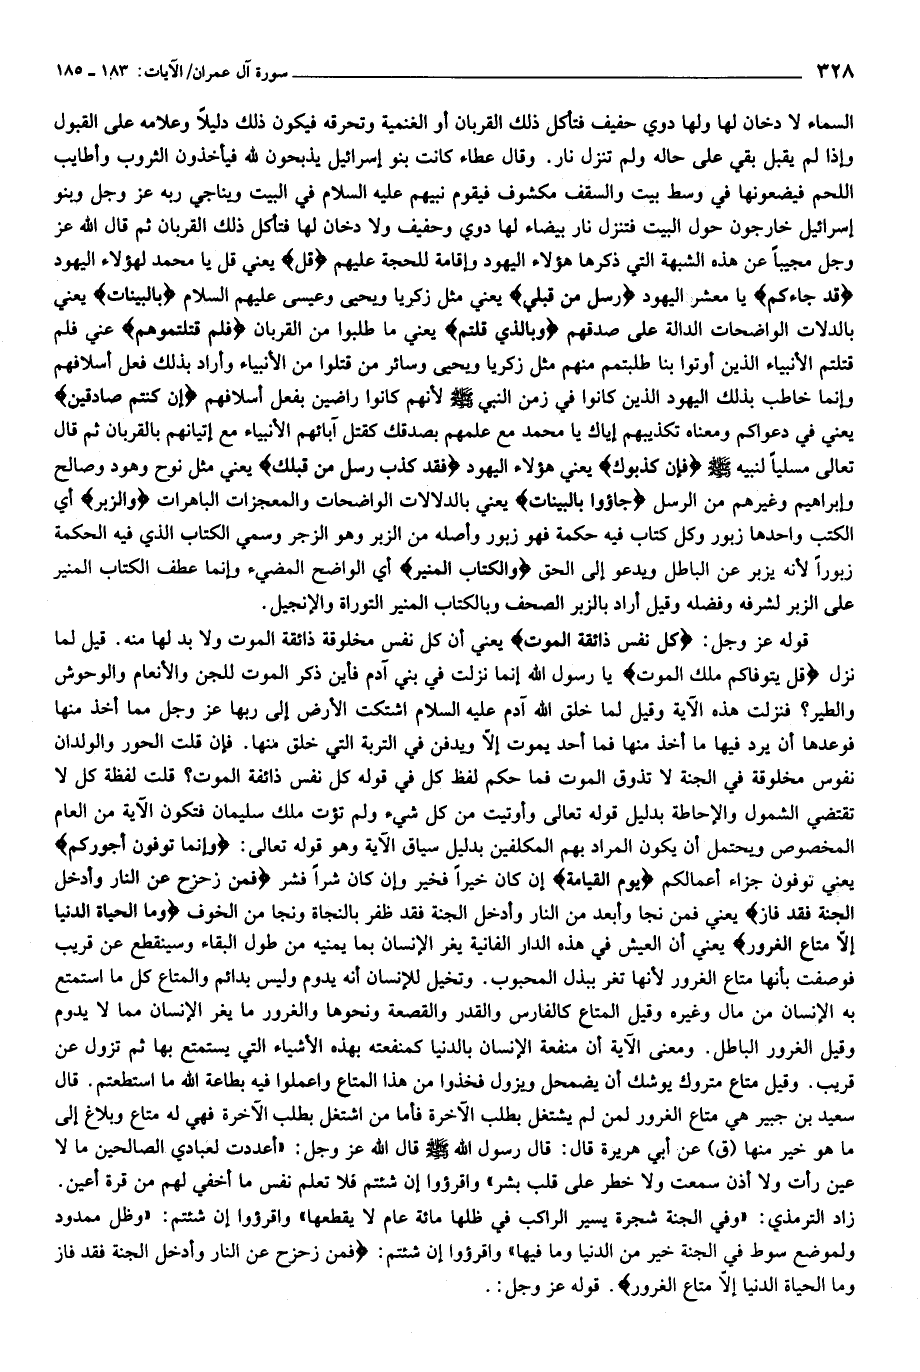 ٣٢٨ سورة آل عمران/ الآيات: ١٨٣ ـ ١٨٥
السماء لا دخان لها ولها دوي حفيف فتأكل ذلك القربان أو الغنمية وتحرقه فيكون ذلك دليلاً وعلامه على القبول
وإذا لم يقبل بقي على حاله ولم تنزل نار. وقال عطاء كانت بنو إسرائيل يذبحون لله فيأخذون الثروب وأطايب
اللحم فيضعونها في وسط بيت والسقف مكشوف فيقوم نبيهم عليه السلام في البيت ويناجي ربه عز وجل وبنو
إسرائيل خارجون حول البيت فتنزل نار بيضاء لها دوي وحفيف ولا دخان لها فتأكل ذلك القربان ثم قال الله عز
وجل مجيباً عن هذه الشبهة التي ذكرها هؤلاء اليهود وإقامة للحجة عليهم ﴿قل﴾ يعني قل يا محمد لهؤلاء اليهود
﴿قد جاءكم﴾ يا معشر اليهود ﴿رسل من قبلي﴾ يعني مثل زكريا ويحيى وعيسى عليهم السلام ﴿بالبينات﴾ يعني
بالدلات الواضحات الدالة على صدقهم ﴿وبالذي قلتم﴾ يعني ما طلبوا من القربان ﴿فلم قتلتموهم﴾ عني فلم
قتلتم الأنبياء الذين أوتوا بنا طلبتمم منهم مثل زكريا ويحيى وسائر من قتلوا من الأنبياء وأراد بذلك فعل أسلافهم
وإنما خاطب بذلك اليهود الذين كانوا في زمن النبي ﷺ لأنهم كانوا راضين بفعل أسلافهم ﴿إن كنتم صادقين﴾
يعني في دعواكم ومعناه تكذيبهم إياك يا محمد مع علمهم بصدقك كقتل آبائهم الأنبياء مع إتيانهم بالقربان ثم قال
تعالى مسلياً لنبيه ﷺ ﴿فإن كذبوك﴾ يعني هؤلاء اليهود ﴿فقد كذب رسل من قبلك﴾ يعني مثل نوح وهود وصالح
وإبراهيم وغيرهم من الرسل ﴿جاؤوا بالبينات﴾ يعني بالدلالات الواضحات والمعجزات الباهرات ﴿والزبر﴾ أي
الكتب واحدها زبور وكل كتاب فيه حكمة فهو زبور وأصله من الزبر وهو الزجر وسمي الكتاب الذي فيه الحكمة
زبوراً لأنه يزبر عن الباطل ويدعو إلى الحق ﴿والكتاب المنير﴾ أي الواضح المضيء وإنما عطف الكتاب المنير
على الزبر لشرفه وفضله وقيل أراد بالزبر الصحف وبالكتاب المنير التوراة والإنجيل.
قوله عز وجل: ﴿كل نفس ذائقة الموت﴾ يعني أن كل نفس مخلوقة ذائقة الموت ولا بد لها منه. قيل لما
نزل ﴿قل يتوفاكم ملك الموت﴾ يا رسول الله إنما نزلت في بني آدم فأين ذكر الموت للجن والأنعام والوحوش
والطير؟ فنزلت هذه الآية وقيل لما خلق الله آدم عليه السلام اشتكت الأرض إلى ربها عز وجل مما أخذ منها
فوعدها أن يرد فيها ما أخذ منها فما أحد يموت إلاّ ويدفن في التربة التي خلق منها. فإن قلت الحور والولدان
نفوس مخلوقة في الجنة لا تذوق الموت فما حكم لفظ كل في قوله كل نفس ذائقة الموت؟ قلت لفظة كل لا
تقتضي الشمول والإحاطة بدليل قوله تعالى وأوتيت من كل شيء ولم تؤت ملك سليمان فتكون الآية من العام
المخصوص ويحتمل أن يكون المراد بهم المكلفين بدليل سياق الآية وهو قوله تعالى: ﴿وإنما توفون أجوركم﴾
يعني توفون جزاء أعمالكم ﴿يوم القيامة﴾ إن كان خيراً فخير وإن كان شراً فشر ﴿فمن زحزح عن النار وأدخل
الجنة فقد فاز﴾ يعني فمن نجا وأبعد من النار وأدخل الجنة فقد ظفر بالنجاة ونجا من الخوف ﴿وما الحياة الدنيا
إلاّ متاع الغرور﴾ يعني أن العيش في هذه الدار الفانية يغر الإنسان بما يمنيه من طول البقاء وسينقطع عن قريب
فوصفت بأنها متاع الغرور لأنها تغر ببذل المحبوب. وتخيل للإنسان أنه يدوم وليس بدائم والمتاع كل ما استمتع
به الإنسان من مال وغيره وقيل المتاع كالفارس والقدر والقصعة ونحوها والغرور ما يغر الإنسان مما لا يدوم
وقيل الغرور الباطل. ومعنى الآية أن منفعة الإنسان بالدنيا كمنفعته بهذه الأشياء التي يستمتع بها ثم تزول عن
قريب. وقيل متاع متروك يوشك أن يضمحل ويزول فخذوا من هذا المتاع واعملوا فيه بطاعة الله ما استطعتم. قال
سعيد بن جبير هي متاع الغرور لمن لم يشتغل بطلب الآخرة فأما من اشتغل بطلب الآخرة فهي له متاع وبلاغ إلى
ما هو خير منها (ق) عن أبي هريرة قال: قال رسول الله ﷺ قال الله عز وجل: «أعددت لعبادي الصالحين ما لا
عين رأت ولا أذن سمعت ولا خطر على قلب بشر» واقرؤوا إن شئتم فلا تعلم نفس ما أخفي لهم من قرة أعين.
زاد الترمذي: «وفي الجنة شجرة يسير الراكب في ظلها مائة عام لا يقطعها» واقرؤوا إن شئتم: «وظل ممدود
ولموضع سوط في الجنة خير من الدنيا وما فيها» واقرؤوا إن شئتم: ﴿فمن زحزح عن النار وأدخل الجنة فقد فاز
وما الحياة الدنيا إلاّ متاع الغرور﴾. قوله عز وجل: .